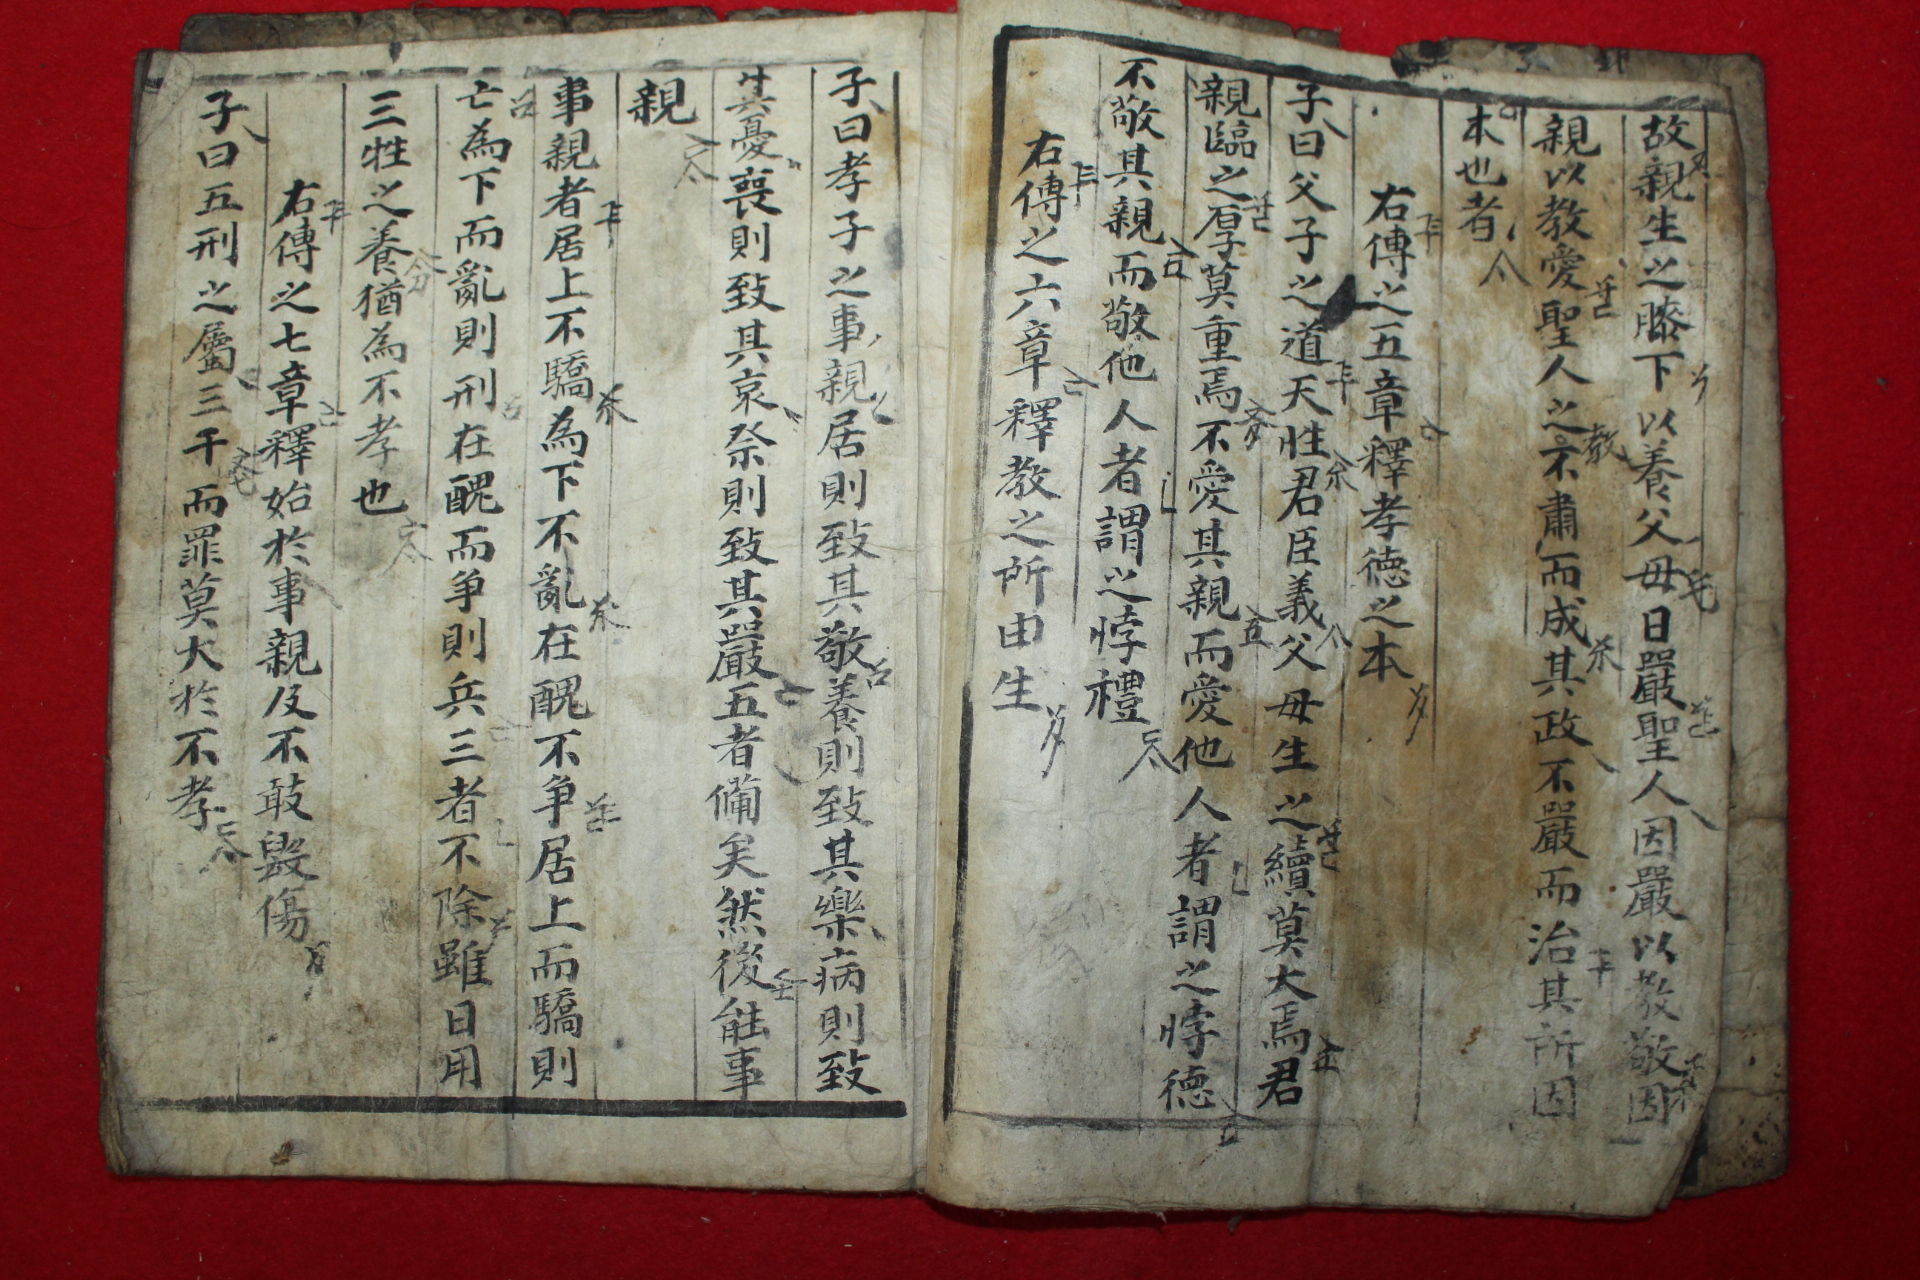 故親生之膝下以養父母日嚴聖人因嚴以教敬因
親以教愛聖人之教不肅而成其政不嚴而治其所因
本也者
右傳之五章釋孝德之本
子曰父子之道天性君臣義父母生之續莫大焉君
親臨之厚莫重焉不愛其親而愛他人者謂之悖德
不敬其親而敬他人者謂之悖禮
右傳之六章釋教之所由生
子曰孝子之事親居則致其敬養則致其樂病則致
其憂喪則致其哀祭則致其嚴五者備矣然後能事
親
事親者居上不驕為下不亂在醜不爭居上而驕則
亡為下而亂則刑在醜而爭則兵三者不除雖日用
三牲之養猶為不孝也
右傳之七章釋始於事親及不敢毀傷
子曰五刑之屬三千而罪莫大於不孝